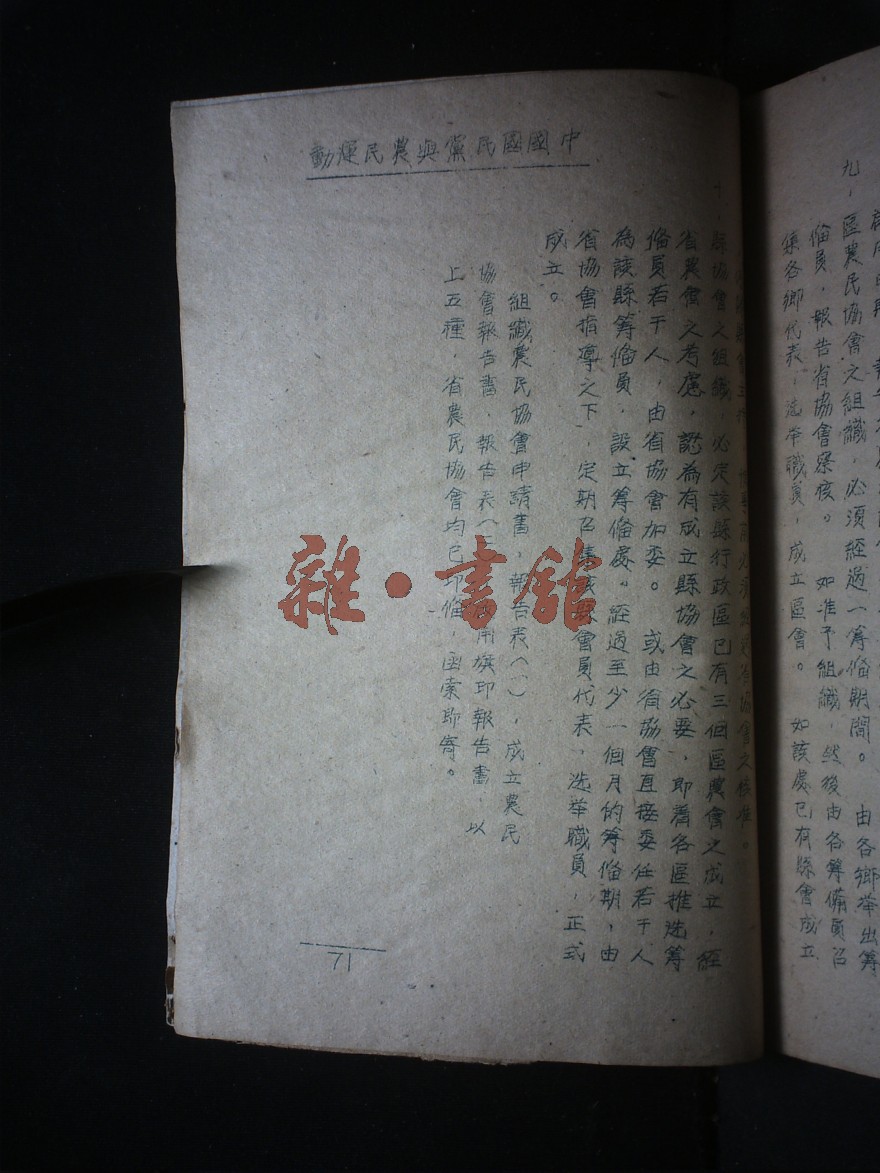 九,區農民協會之組織,必須經過一籌俻期間。 由各鄉举出籌
俻員,報告省協會察核。 如准予組織,然後由各籌備員召
集各鄉代表,选举職員,成立區會。 如該處已有縣會成立
中國國民黨與農民運動
十,縣協會之組織,必定該縣行政區已有三個區農會之成立,經
省農會之考慮,認為有成立縣協會之必要,即着各區推选籌
俻員若干人,由省協會加委。 或由省協會直接委任若干人
為該縣籌俻員,設立籌俻處。經過至少一個月的籌俻期,由
省協會指導之下,定期召集該縣會員代表,选举職員,正式
成立。
組織農民協會申請書,報告表(一),成立農民
協會報告書,報告表(二) 用旗印報告書,以
上五種,省農民協會均已印俻,函索即寄。
71
雜·書館